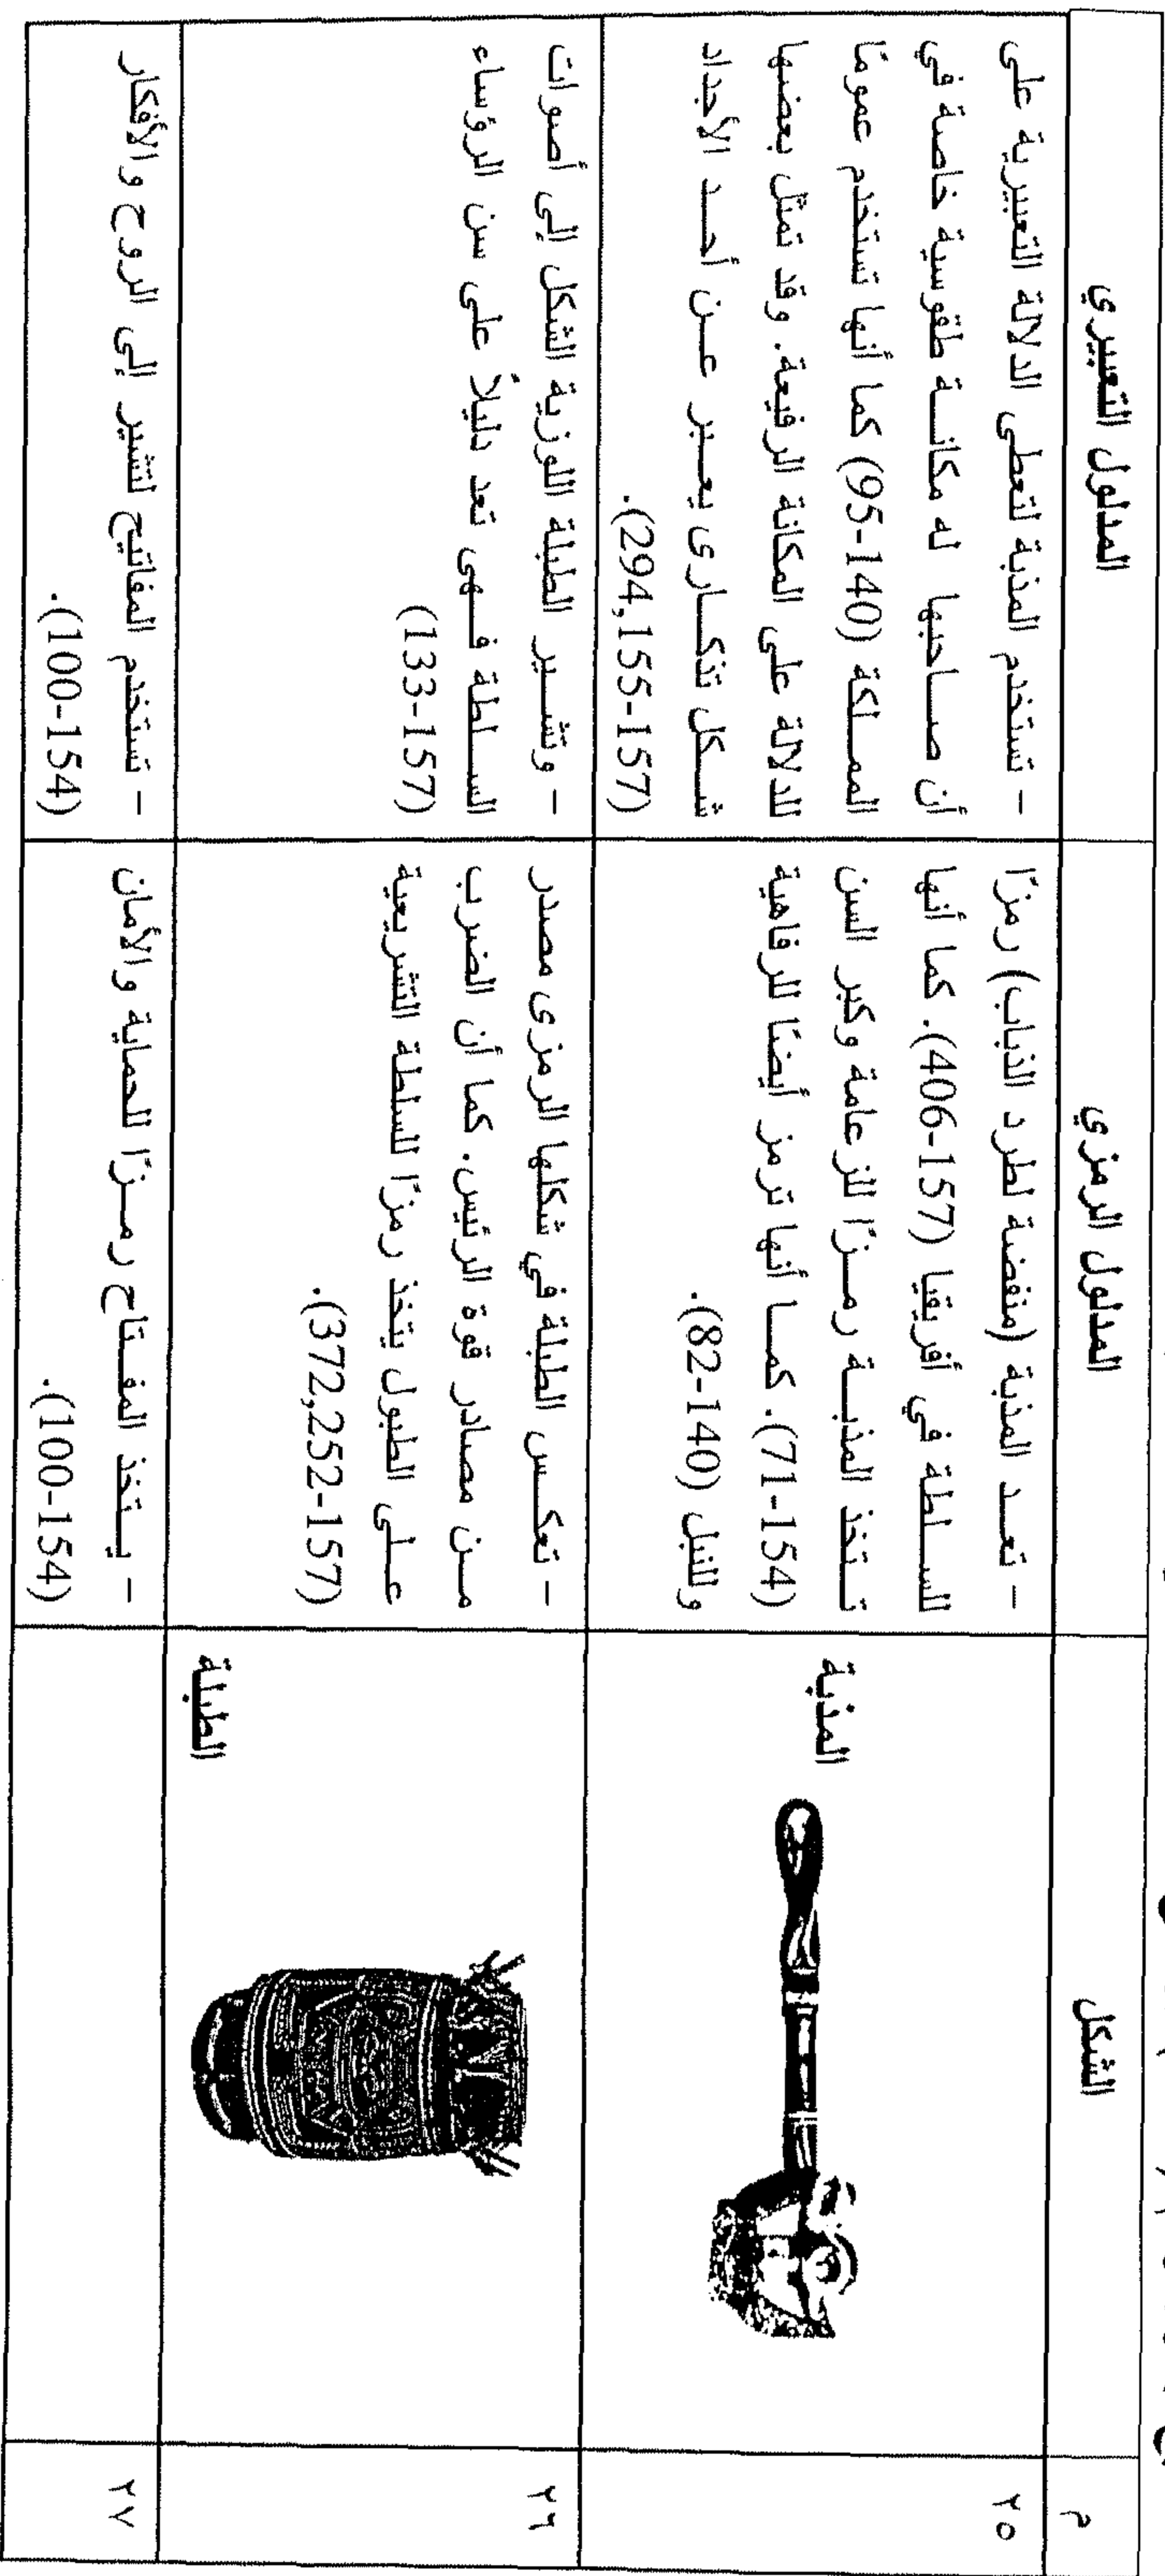 م
الشكل
المدلول الرمزي
المدلول التعبيري
٢٥
المذبة
- تعد المذبة (منفضة لطرد الذباب) رمزًا
للسلطة في أفريقيا (157-406). كما أنها
تتخذ المذبة رمزًا للزعامة وكبر السن
(154-71). كما أنها ترمز أيضًا للرفاهية
وللنبل (140-82).
- تستخدم المذبة لتعطى الدلالة التعبيرية على
أن صاحبها له مكانة طقوسية خاصة في
المملكة (140-95) كما أنها تستخدم عمومًا
للدلالة على المكانة الرفيعة. وقد تمثل بعضها
شكل تذكارى يعبر عن أحد الأجداد
(157-294,155).
٢٦
الطبلة
- تعكس الطبلة في شكلها الرمزى مصدر
من مصادر قوة الرئيس. كما أن الضرب
على الطبول يتخذ رمزًا للسلطة التشريعية
(157-372,252).
- وتشير الطبلة اللوزية الشكل إلى أصوات
السلطة فهى تعد دليلاً على سن الرؤساء
(157-133)
٢٧
- يتخذ المفتاح رمزًا للحماية والأمان
(154-100).
- تستخدم المفاتيح لتشير إلى الروح والأفكار
(154-100).